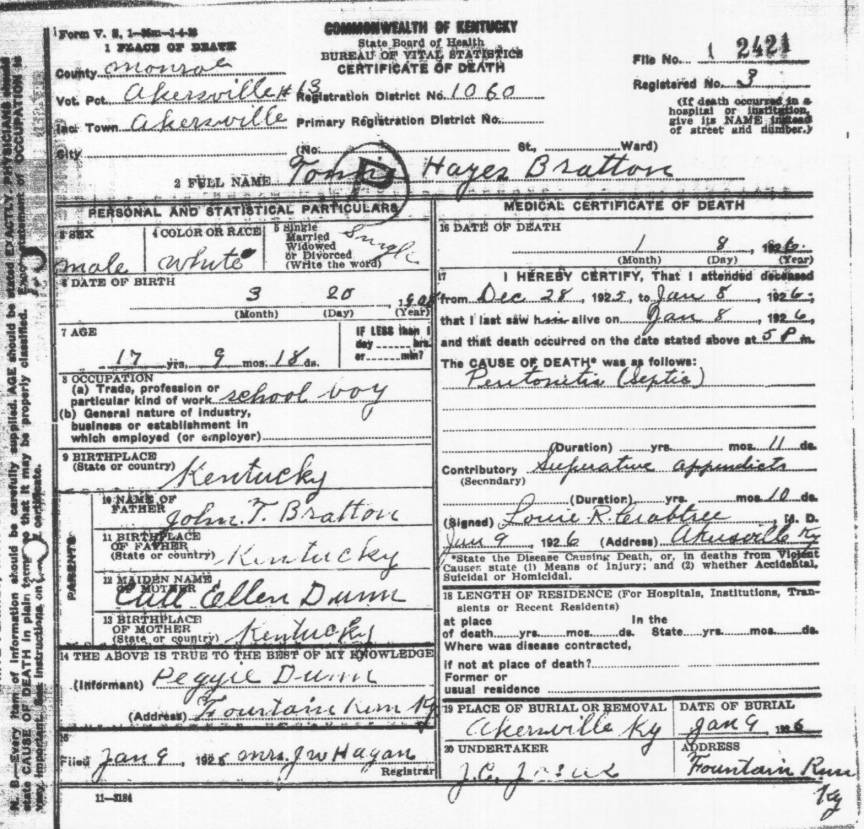 Form V. S. 1-
COMMONWEALTH OF KENTUCKY
State Board of Health
BUREAU OF VITAL STATISTICS
CERTIFICATE OF DEATH
1 PLACE OF DEATH
County Monroe
File No. 1 2421
Vot. Pct. Akersville #13 Registration District No. 1060
Registered No. 3
Town Akersville Primary Registration District No.
(If death occurred in a hospital or institution, give its NAME instead of street and number.)
City (No. St., Ward)
2 FULL NAME Hayes Bratton
P
PERSONAL AND STATISTICAL PARTICULARS
3 SEX male
4 COLOR OR RACE White
5 Single Married Widowed or Divorced (Write the word) Single
6 DATE OF BIRTH
3 20 1908
(Month) (Day) (Year)
7 AGE
17 yrs. 9 mos. 18 ds.
IF LESS than 1 day hrs. or min?
8 OCCUPATION
(a) Trade, profession or particular kind of work school boy
(b) General nature of industry, business or establishment in which employed (or employer)
9 BIRTHPLACE (State or country) Kentucky
PARENTS
10 NAME OF FATHER John T. Bratton
11 BIRTHPLACE OF FATHER (State or country) Kentucky
12 MAIDEN NAME OF MOTHER Ellen Dunn
13 BIRTHPLACE OF MOTHER (State or country) Kentucky
14 THE ABOVE IS TRUE TO THE BEST OF MY KNOWLEDGE
(Informant) Dunn
(Address) Fountain Run Ky
15
Filed Jan 9, 1926 Mrs. J W Hagan
Registrar
11-3184
MEDICAL CERTIFICATE OF DEATH
16 DATE OF DEATH
1 8 1926
(Month) (Day) (Year)
17 I HEREBY CERTIFY, That I attended deceased
from Dec 28, 1925, to Jan 8, 1926,
that I last saw him alive on Jan 8, 1926,
and that death occurred on the date stated above at 5 P m.
The CAUSE OF DEATH* was as follows:
Peritonitis (Septic)
(Duration) yrs. mos. 11 ds.
Contributory Supurative appendicits
(Secondary)
(Duration) yrs. mos. 10 ds.
(Signed) Louie R. Crabtree M. D.
Jan 9, 1926 (Address) Akersville Ky
*State the Disease Causing Death, or, in deaths from Violent Causes state (1) Means of Injury; and (2) whether Accidental, Suicidal or Homicidal.
18 LENGTH OF RESIDENCE (For Hospitals, Institutions, Transients or Recent Residents)
at place of death yrs. mos. ds. In the State yrs. mos. ds.
Where was disease contracted,
if not at place of death?
Former or usual residence
19 PLACE OF BURIAL OR REMOVAL Akersville Ky
DATE OF BURIAL Jan 9 1926
20 UNDERTAKER J. C.
ADDRESS Fountain Run Ky
N. B.—Every item of information should be carefully supplied. AGE should be stated EXACTLY. PHYSICIANS should
state CAUSE OF DEATH in plain terms, so that it may be properly classified. Exact statement of OCCUPATION is
very important. See instructions on certificate.